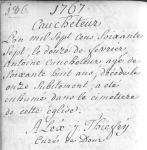 186 1767
Caucheteur
L'an mil sept cens soixante
sept, le douze de fevrier,
Antoine Caucheteur agé de
soixante huit ans, décédé le
onze Retablement a été
inhumé dans le cimetière
de cette église.
A Lez J Thiefry
Curé de Dour